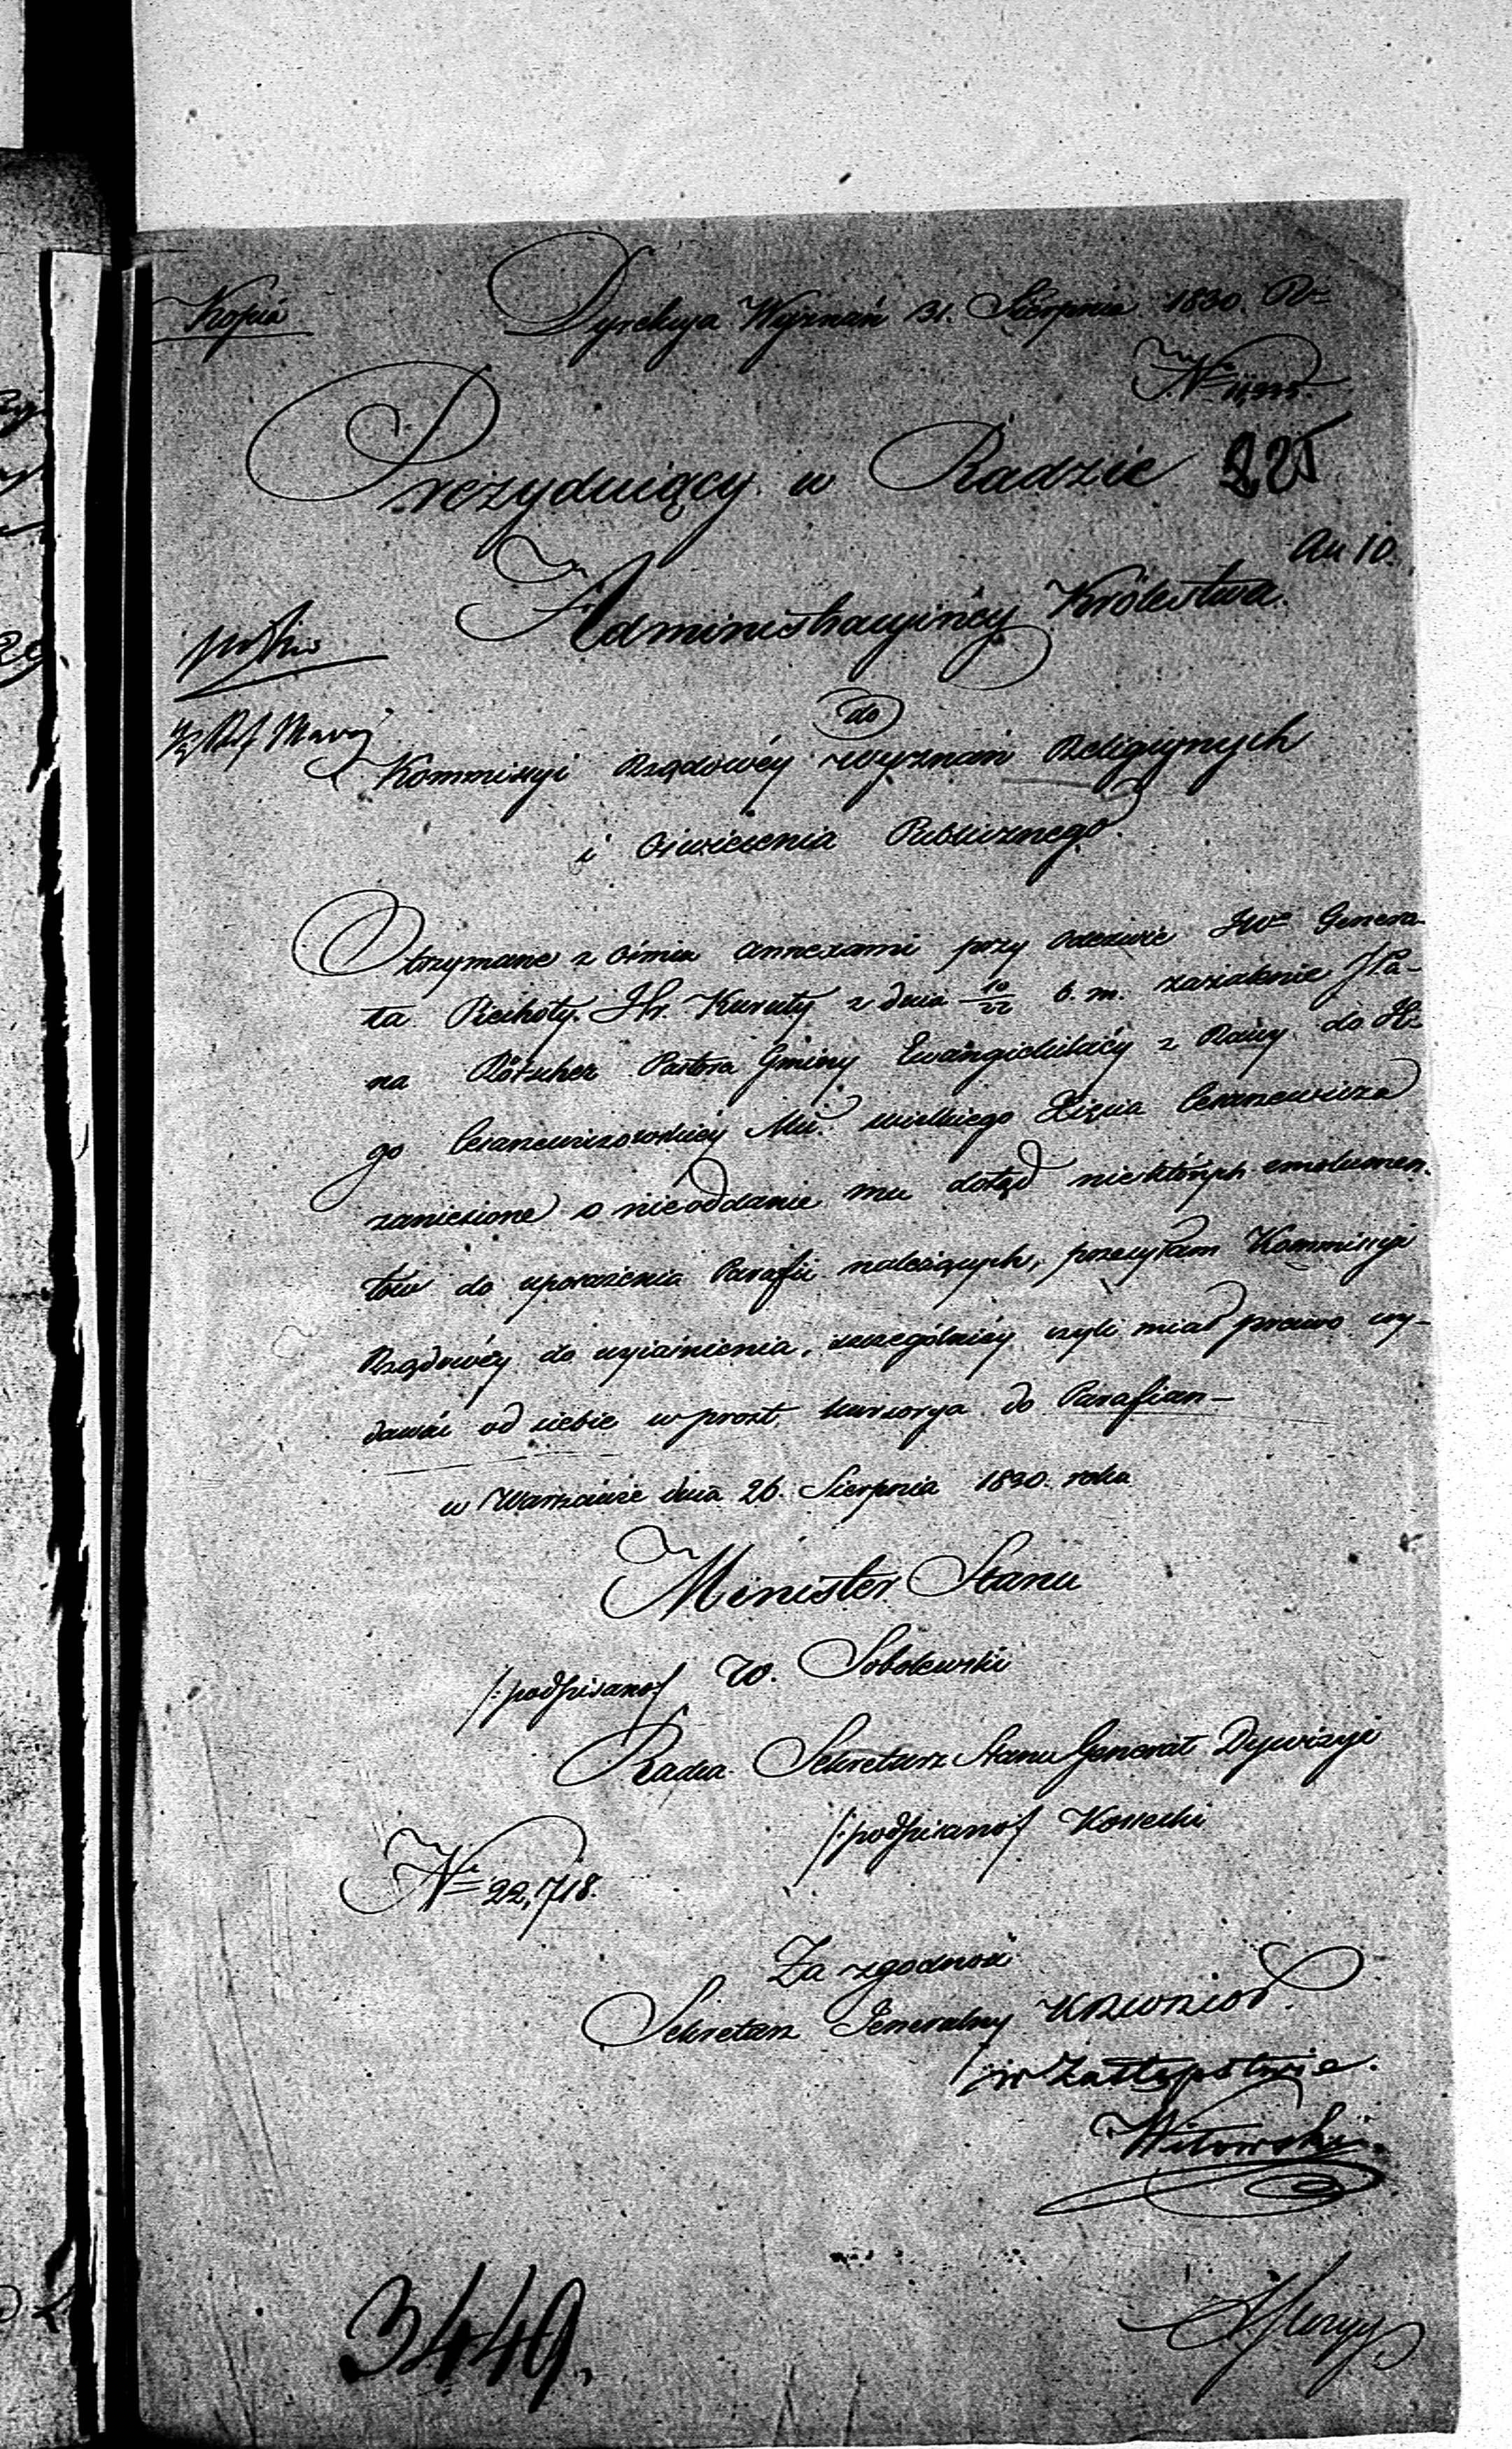 Kopia
Dyrekcya Wyznań 31. Sierpnia 1830. R=
N=
Prezyduiący w Radzie 225
Au 10.
Administracyinéy Królestwa.
do
Kommissyi Rządowéy Wyznań Religiynych
i Oświecenia Publicznego.
Otrzymane z ośmia annexami przy odezwie JWo Genera-
ła Piechoty Hr. Kuruty z dnia 10/22 b. m. zażalenie JPa-
na Rötscher Pastora Gminy Ewangielickiéy z Rawy do Je-
go Cesarzewiczowskiéy Mći wielkiego Xięcia Cesarzewicza
zaniesione o nieoddanie mu dotąd niektórych emolumen-
tów do uposażenia Parafii należących, przesyłam Kommissyi
Rządowéy do wyiaśnienia, szczególniéy czyli miał prawo wy-
dawać od siebie wprost kursorya do Parafian –
w Warszawie dnia 26. Sierpnia 1830. roku
Minister Stanu
/:podpisano:/ W. Sobolewski
Radca Sekretarz Stanu Generał Dywizyi
/:podpisano:/ Kossecki
N= 22,718.
Za zgodność
Sekretarz Generalny
w Zastępstwie.
Witowski
3449.